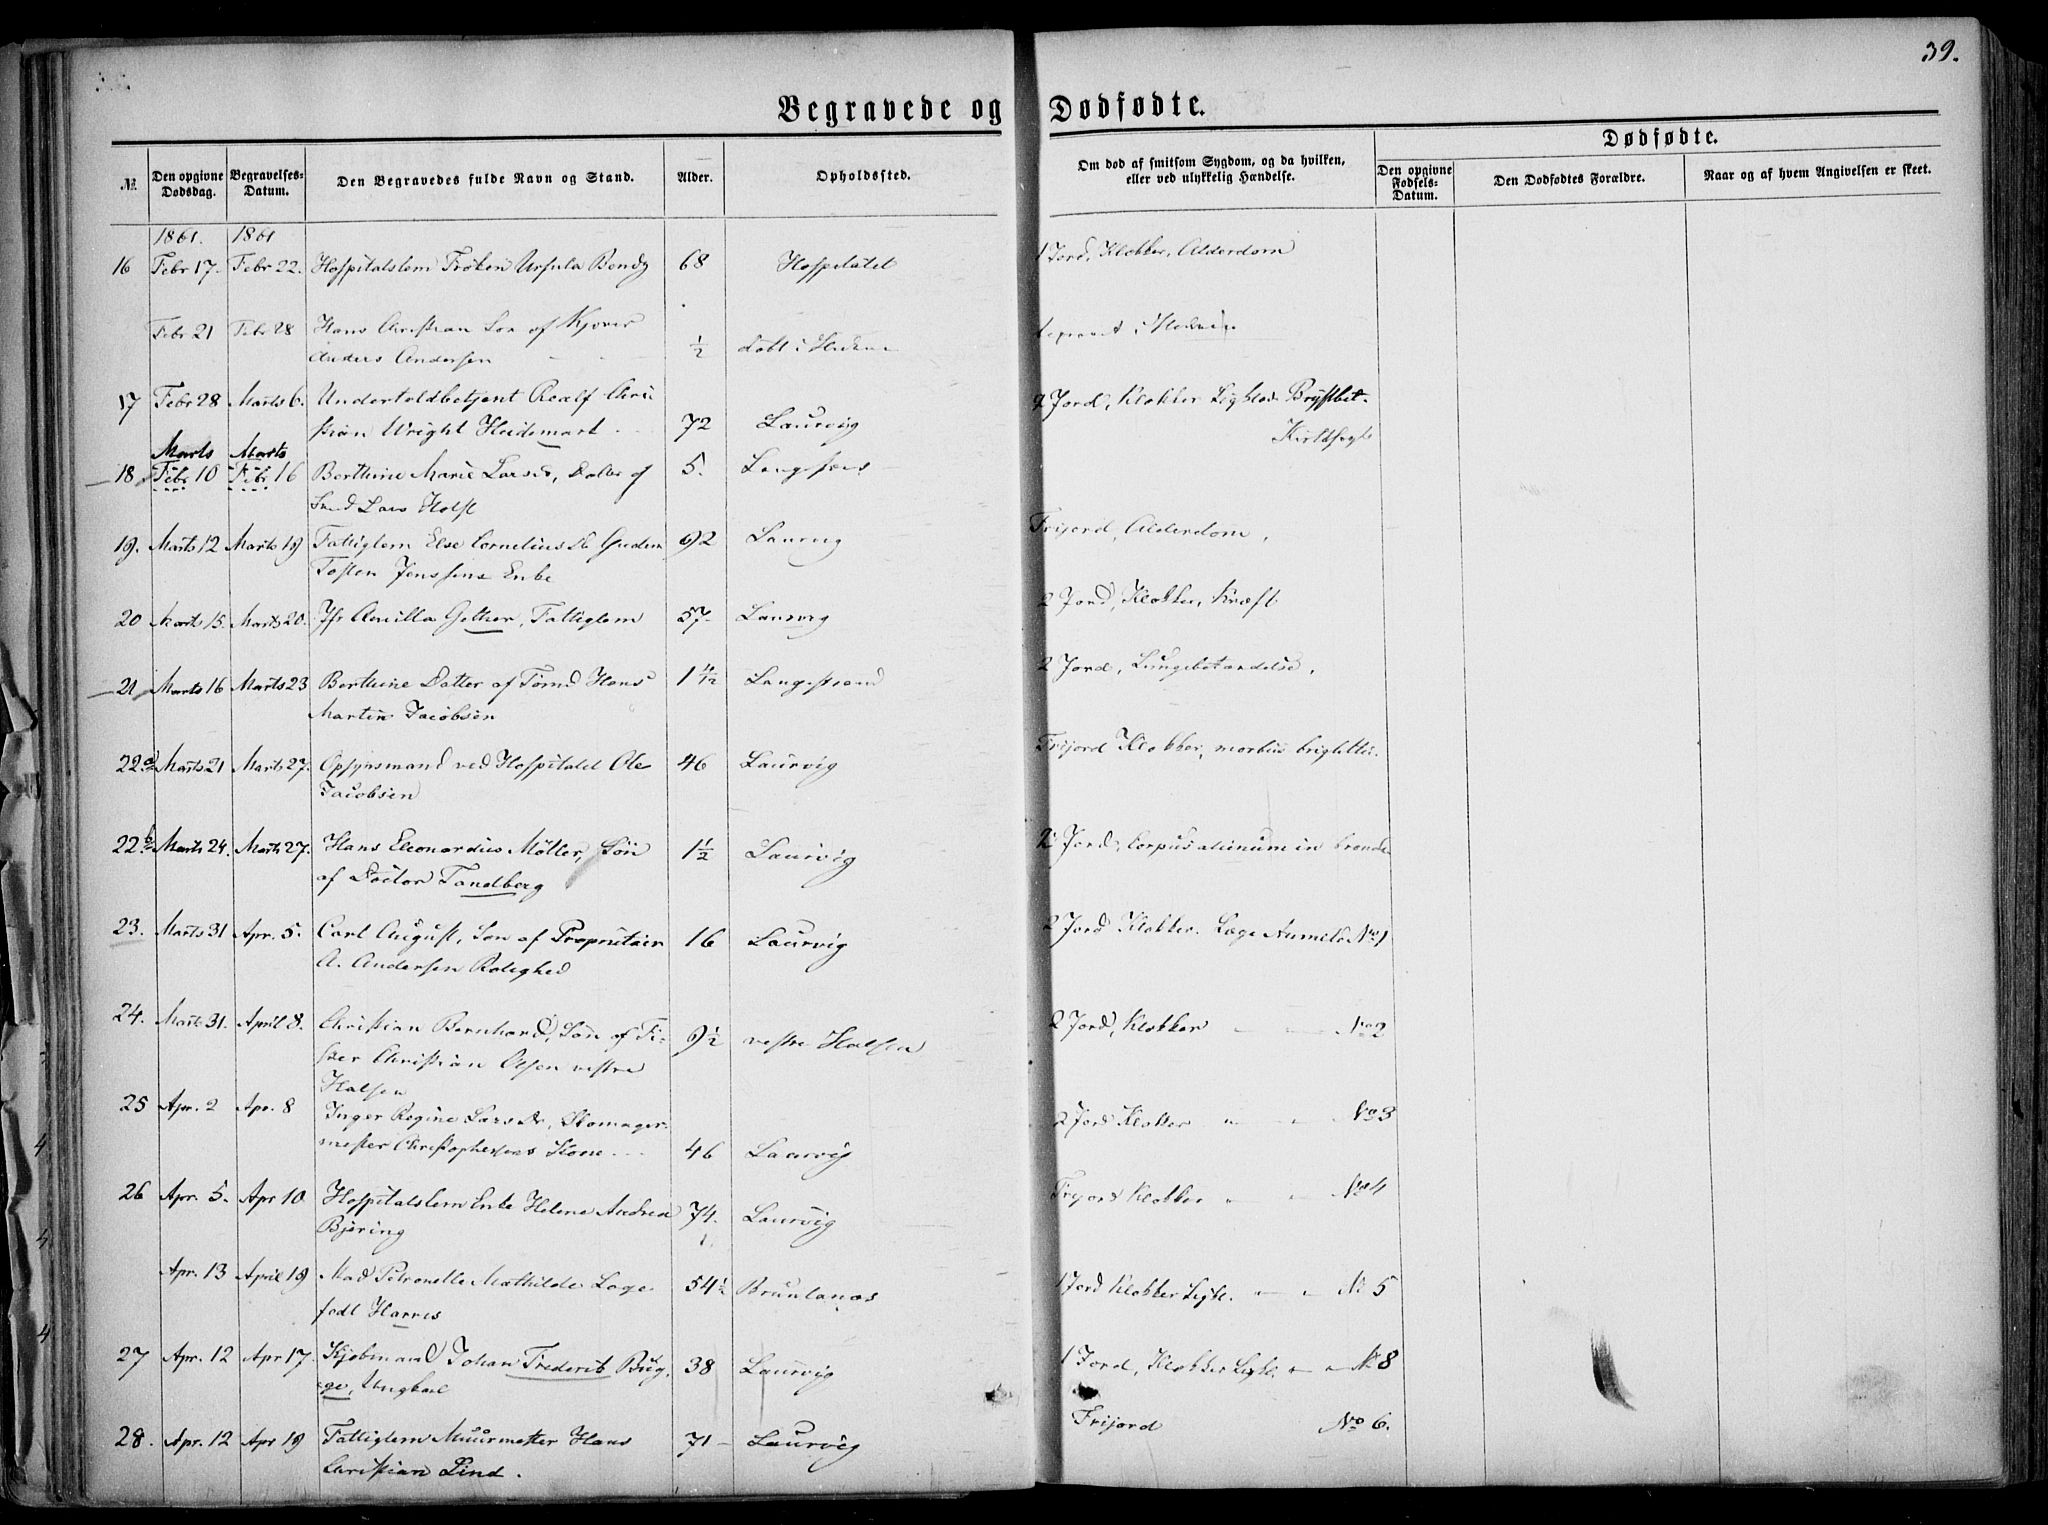 39.
Begravede og Dødfødte.
Dødfødte.
№
Den opgivne Dødsdag.
Begravelses-Datum.
Den Begravedes fulde Navn og Stand.
Alder.
Opholdssted.
Om død af smitsom Sygdom, og da hvilken, eller ved ulykkelig Hændelse.
Den opgivne Fødsels-Datum.
Den Dødfødtes Forældre.
Naar og af hvem Angivelsen er skeet.
1861. 1861
16 Febr 17. Febr 22. Hospitalslem Frøken Ursula Bendz 68 Hospitalet 1 Jord, Klokker, Alderdom
Febr 21 Febr 28 Hans Christian Søn af
Anders Andersen ½ døbt i
17 Febr 28 Marts 6. Undertoldbetjent Roalf Chri
stian Wright Heidemark 72 Laurvig 2 Jord, Klokker
Marts Marts
18 Febr 10 Febr 16 Berthine Marie Larsd, Datter af 5.
Lars Holst
19. Marts 12 Marts 19 Fattiglem Else Cornelius D. 92 Laurvig Frijord, Alderdom,
Jenssens Enke
20 Marts 15. Marts 20. Jfr Gether, Fattiglem 57. Laurvig 2 Jord, Klokker, Kræft
21 Marts 16 Marts 23 Berthine Datter af Tømd Hans 1 4/12 Langestrand 2 Jord, Lungebetændelse,
Martin Jacobsen
22a Marts 21 Marts 27. Opsynsmand ved Hospitalet Ole 46 Laurvig Frijord Klokker, morbus brightii.
Jacobsen
22b Marts 24. Marts 27. Hans Eleonardus Møller, Søn 1½ Laurvig 2 Jord, Corpus alienum in
af Doctor Tandberg
23. Marts 31 Apr. 5. Carl August, Søn af Proprietair 16 Laurvig 2 Jord Klokker. Læge No 1
A. Andersen Rolighed
24. Marts 31. April 8. Christian Bernhard, Søn af Fi-
sker Christian Olsen vestre 9½ vestre Halsen 2 Jord, Klokker No 2
Halsen
25 Apr. 2 Apr. 8 Inger Regine Lars Dr, Skomager-
mester Christophersens Kone 46 Laurvig 2 Jord Klokker " " No 3
26 Apr. 5. Apr 10. Hospitalslem Enke Helene Andrea 74. Laurvig Frijord Klokker " " No 4
Bjering
Apr. 13 April 19 Mad Petronelle Mathilde Lage 54½ Brunlanæs 1 Jord Klokker Ligkl. " " No 5
født Harres
27 Apr. 12 Apr 17. Kjøbmand Johan Frederik Bug- 38 Laurvig 1 Jord, Klokker Ligkl. " " No 8
ge, Ungkarl
28. Apr. 12 Apr 19 Fattiglem Muurmester Hans 71 Laurvig Frijord No 6.
Christian Lind.